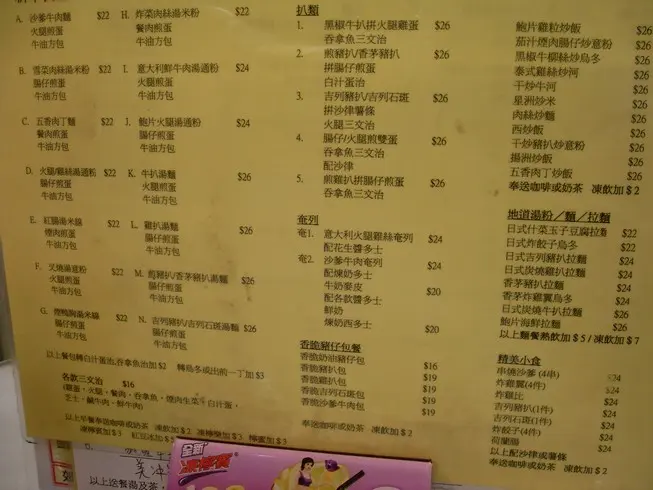 A. 沙爹牛肉麵 $22
火腿煎蛋
牛油方包
B. 雪菜肉絲湯米粉 $22
腸仔煎蛋
牛油方包
C. 五香肉丁麵 $22
餐肉煎蛋
牛油方包
D. 火腿/雞絲湯通粉 $22
腸仔煎蛋
牛油方包
E. 紅腸湯米線 $22
煙肉煎蛋
牛油方包
F. 叉燒湯意粉 $22
火腿煎蛋
牛油方包
G. 煙鴨胸湯米線 $22
腸仔煎蛋
牛油方包
H. 炸菜肉絲湯米粉 $22
餐肉煎蛋
牛油方包
I. 意大利鮮牛肉湯通粉 $24
火腿煎蛋
牛油方包
I. 鮑片火腿湯通粉 $24
腸仔煎蛋
牛油方包
K. 牛扒湯麵 $26
火腿煎蛋
牛油方包
L. 雞扒湯麵 $26
腸仔煎蛋
牛油方包
M. 煎豬扒/香茅豬扒湯麵 $26
腸仔煎蛋
牛油方包
N. 吉列豬扒/吉列石斑湯麵 $26
腸仔煎蛋
牛油方包
以上餐包轉白汁蛋治,吞拿魚治加$2 轉烏冬或出前一丁加$3
各款三文治 $16
(雞蛋,火腿,餐肉,吞拿魚,煙肉生菜牛白汁蛋,
芝士,鹹牛肉,鮮牛肉)
以上早餐奉送咖啡或奶茶 凍飲加$2 凍檸樂加$3 檸蜜加$3
凍檸賓加$3 紅豆冰加$5
扒類
1. 黑椒牛扒拼火腿雞蛋 $26
吞拿魚三文治
2. 煎豬扒/香茅豬扒 $26
拼腸仔煎蛋
白汁蛋治
3. 吉列豬扒/吉列石斑 $26
拼沙律薯條
火腿三文治
4. 腸仔/火腿煎雙蛋 $26
吞拿魚三文治
配沙律
5. 煎雞扒拼腸仔煎蛋 $26
吞拿魚三文治
奄列
奄1. 意大利火腿雞絲奄列 $24
配花生醬多士
奄2. 沙爹牛肉奄列 $24
配煉奶多士
牛奶麥皮 $20
配各款醬多士
鮮奶
煉奶西多士 $20
香脆豬仔包餐
香脆奶油豬仔包 $16
香脆豬扒包 $19
香脆雞扒包 $19
香脆吉列石斑包 $19
香脆沙爹牛肉包 $19
奉送咖啡或奶茶 凍飲加$2
鮑片雞粒炒飯 $26
茄汁煙肉腸仔炒意粉 $26
黑椒牛柳絲炒烏冬 $26
泰式雞絲炒河 $26
干炒牛河 $26
星洲炒米 $26
肉絲炒麵 $26
西炒飯 $26
干炒豬扒炒意粉 $26
揚洲炒飯 $26
五香肉丁炒飯 $26
奉送咖啡或奶茶 凍飲加$2
地道湯粉/麵/拉麵
日式什菜玉子豆腐拉麵 $22
日式炸餃子烏冬 $22
日式吉列豬扒拉麵 $24
日式炭燒雞扒拉麵 $24
香茅豬扒拉麵 $24
香茅炸雞翼烏冬 $24
日式炭燒牛扒拉麵 $26
鮑片海鮮拉麵 $26
以上麵餐熱飲加$5/凍飲加$7
精美小食
串燒沙爹(4串) $24
炸雞翼(4件) $24
炸雞比 $24
吉列豬扒(1件) $24
吉列石斑(1件) $24
炸餃子(4件) $24
荷蘭腸 $24
以上配沙律或薯條
奉送咖啡或奶茶 凍飲加$2
全新
以上送餐湯及茶